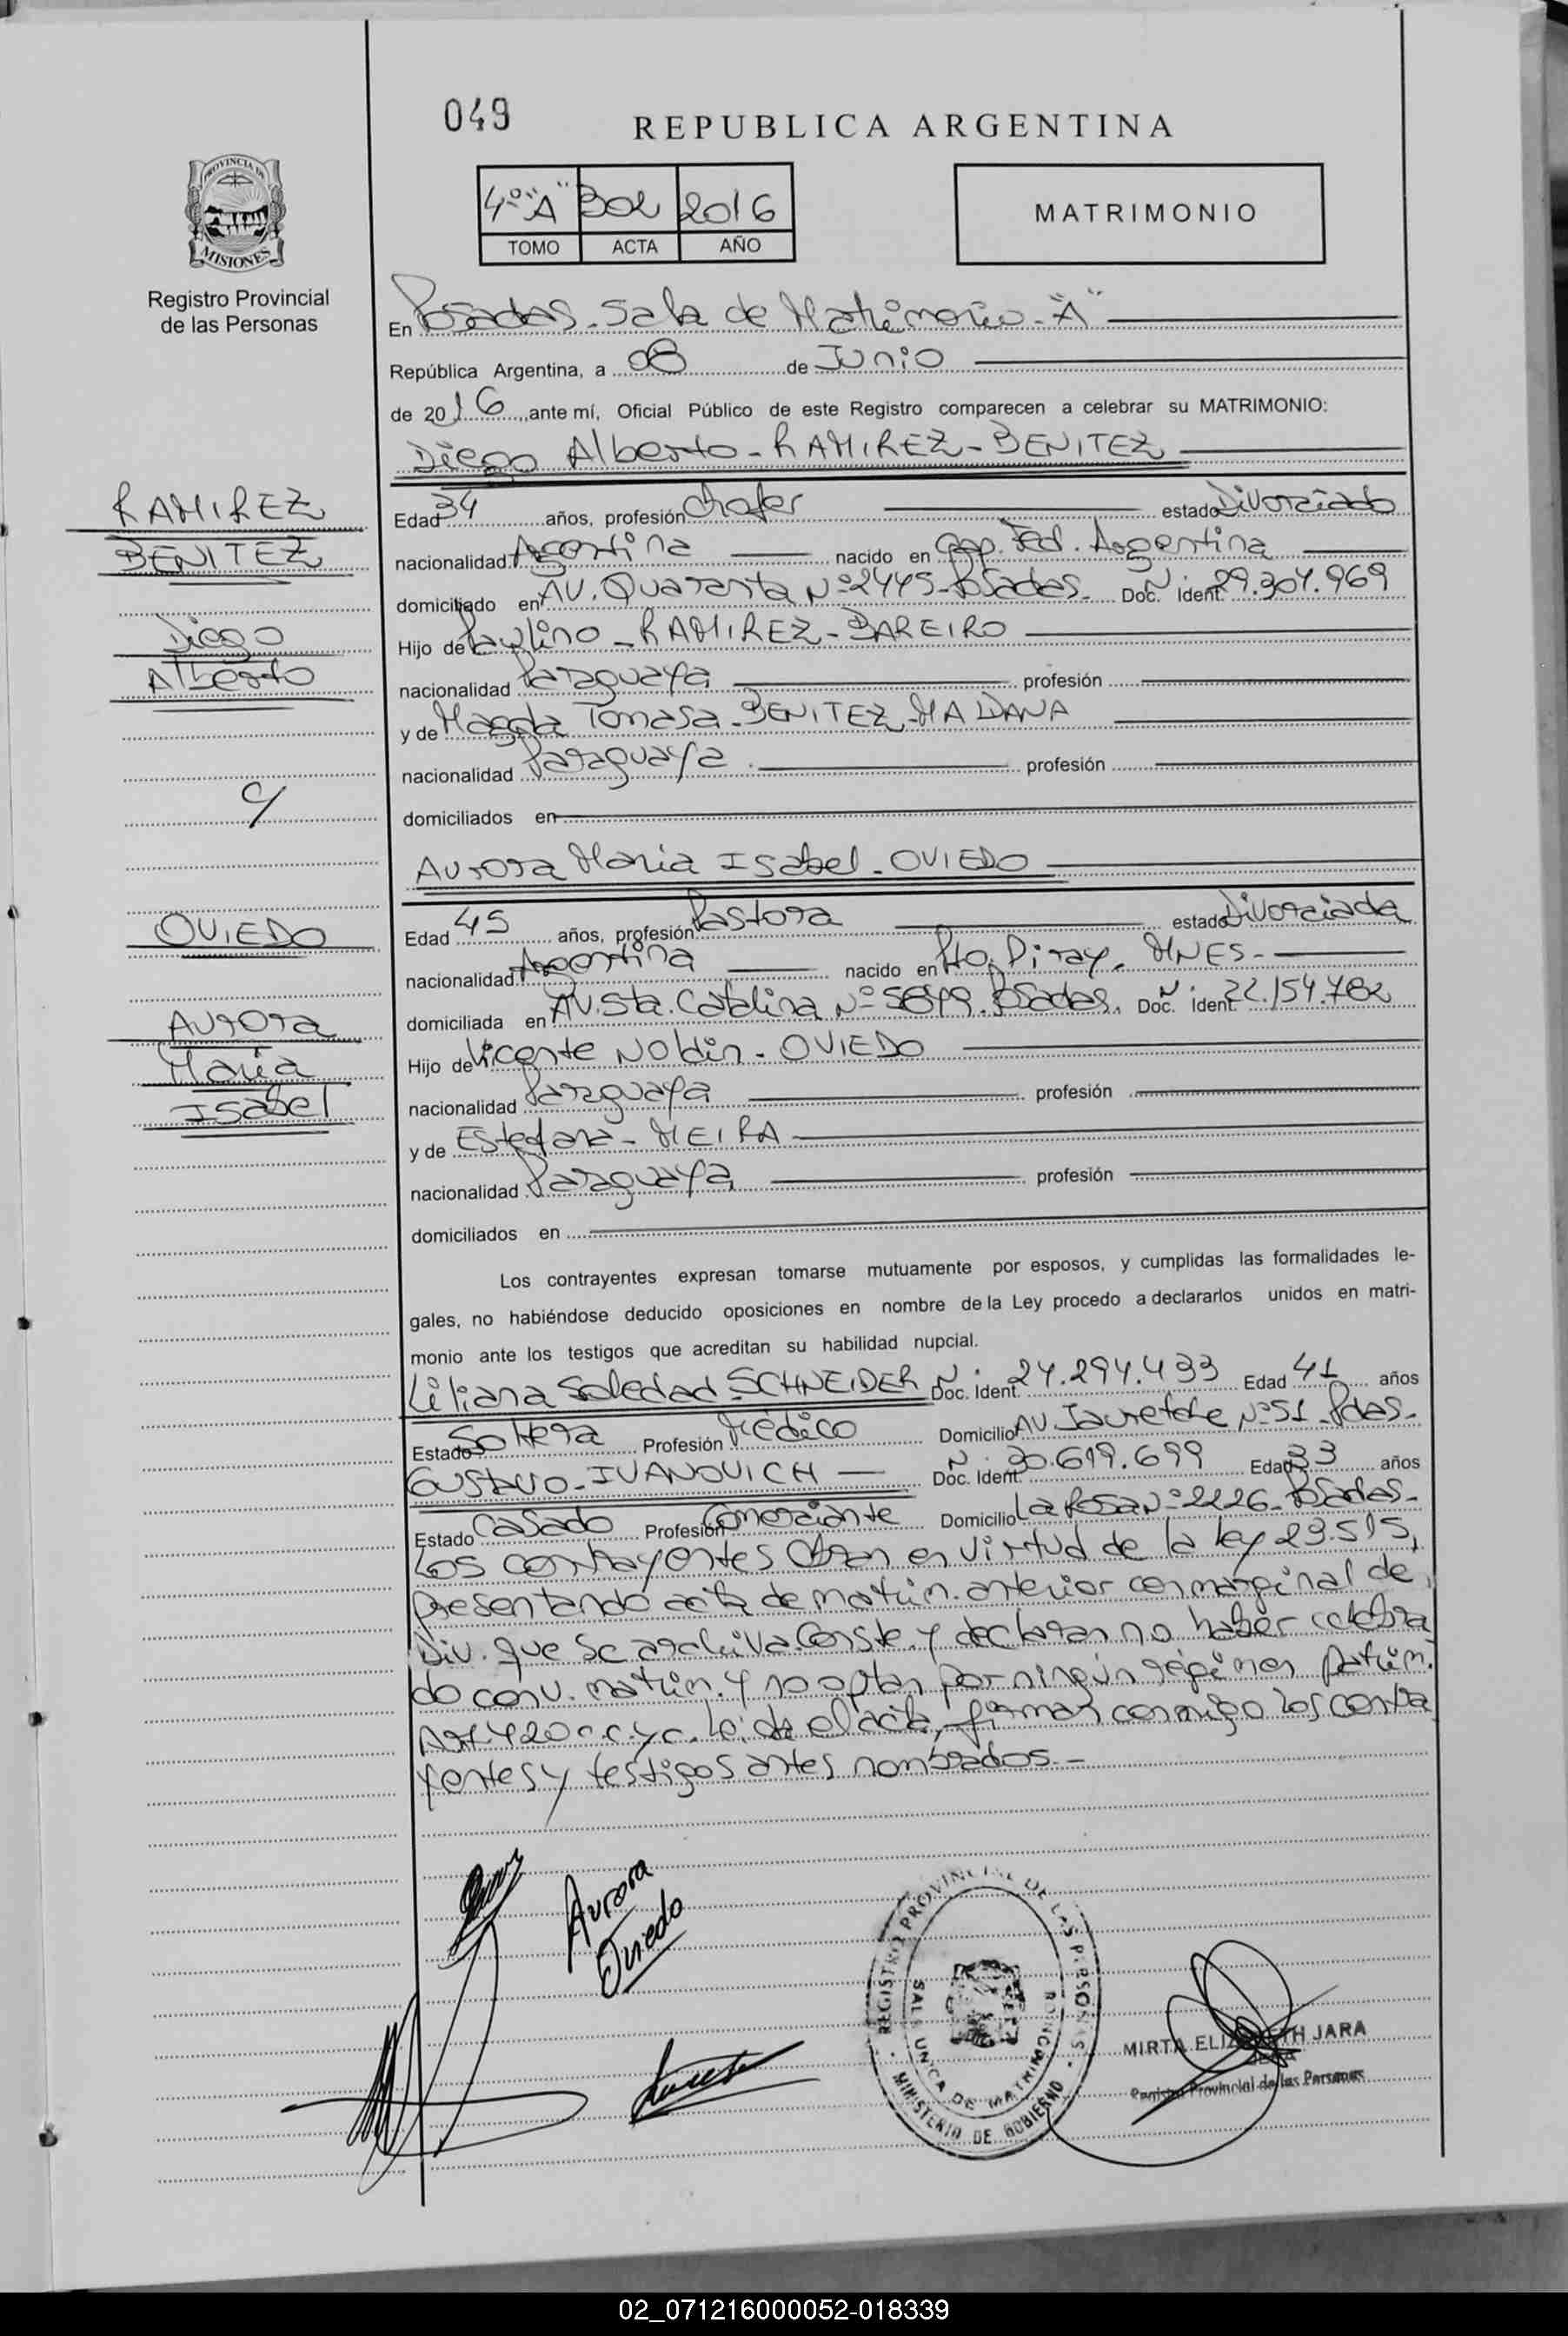 049
REPUBLICA ARGENTINA
4º "A" 302 2016
TOMO ACTA AÑO
MATRIMONIO
PROVINCIA DE
MISIONES
Registro Provincial
de las Personas
En Posadas - Sala de Matrimonio - "A"
República Argentina, a 08 de Junio
de 2016, ante mí, Oficial Público de este Registro comparecen a celebrar su MATRIMONIO:
Diego Alberto - RAMIREZ - BENITEZ
RAMIREZ
BENITEZ
Diego
Alberto
c/
OVIEDO
Aurora
Maria
Isabel
Edad 34 años, profesión Chofer estado Divorciado
nacionalidad Argentina nacido en Cap. Fed. Argentina
domiciliado en AV. Quaranta Nº 2445 - Posadas - Doc. Ident. N: 29.307.969
Hijo de Paulino - RAMIREZ - BAREIRO
nacionalidad Paraguaya profesión
y de Magda Tomasa - BENITEZ - MADANA
nacionalidad Paraguaya profesión
domiciliados en
Aurora Maria Isabel - OVIEDO
Edad 45 años, profesión Pastora estado Divorciada
nacionalidad Argentina nacido en Pto. Piray - MNES -
domiciliada en AV. Sta. Catalina Nº 5899. Posadas. Doc. Ident. N: 22.154.782
Hijo de Vicente Noldin - OVIEDO
nacionalidad Paraguaya profesión
y de Estefana - MEIRA
nacionalidad Paraguaya profesión
domiciliados en
Los contrayentes expresan tomarse mutuamente por esposos, y cumplidas las formalidades le-
gales, no habiéndose deducido oposiciones en nombre de la Ley procedo a declararlos unidos en matri-
monio ante los testigos que acreditan su habilidad nupcial.
Liliana Soledad SCHNEIDER Doc. Ident. N: 24.294.433 Edad 41 años
Estado Soltera Profesión Médico Domicilio AV Jauretche Nº 51 - Pdas -
Gustavo - IVANOVICH Doc. Ident. N: 30.619.699 Edad 33 años
Estado Casado Profesión Comerciante Domicilio La Rosa Nº 2226 - Posadas -
Los contrayentes obran en virtud de la ley 23.515,
presentando acta de matrim. anterior con marginal de
Div. que se archiva. Conste. y declaran no haber celebra
do conv. matrim. y no optan por ningún régimen patrim.
Art. 420 c.c. y c. Leida el acta, firman conmigo los contra
yentes y testigos antes nombrados. -
Aurora
Oviedo
REGISTRO PROVINCIAL DE LAS PERSONAS
SALA UNICA DE MATRIMONIO
MINISTERIO DE GOBIERNO
MIRTA ELIZABETH JARA
Registro Provincial de las Personas
02_071216000052-018339